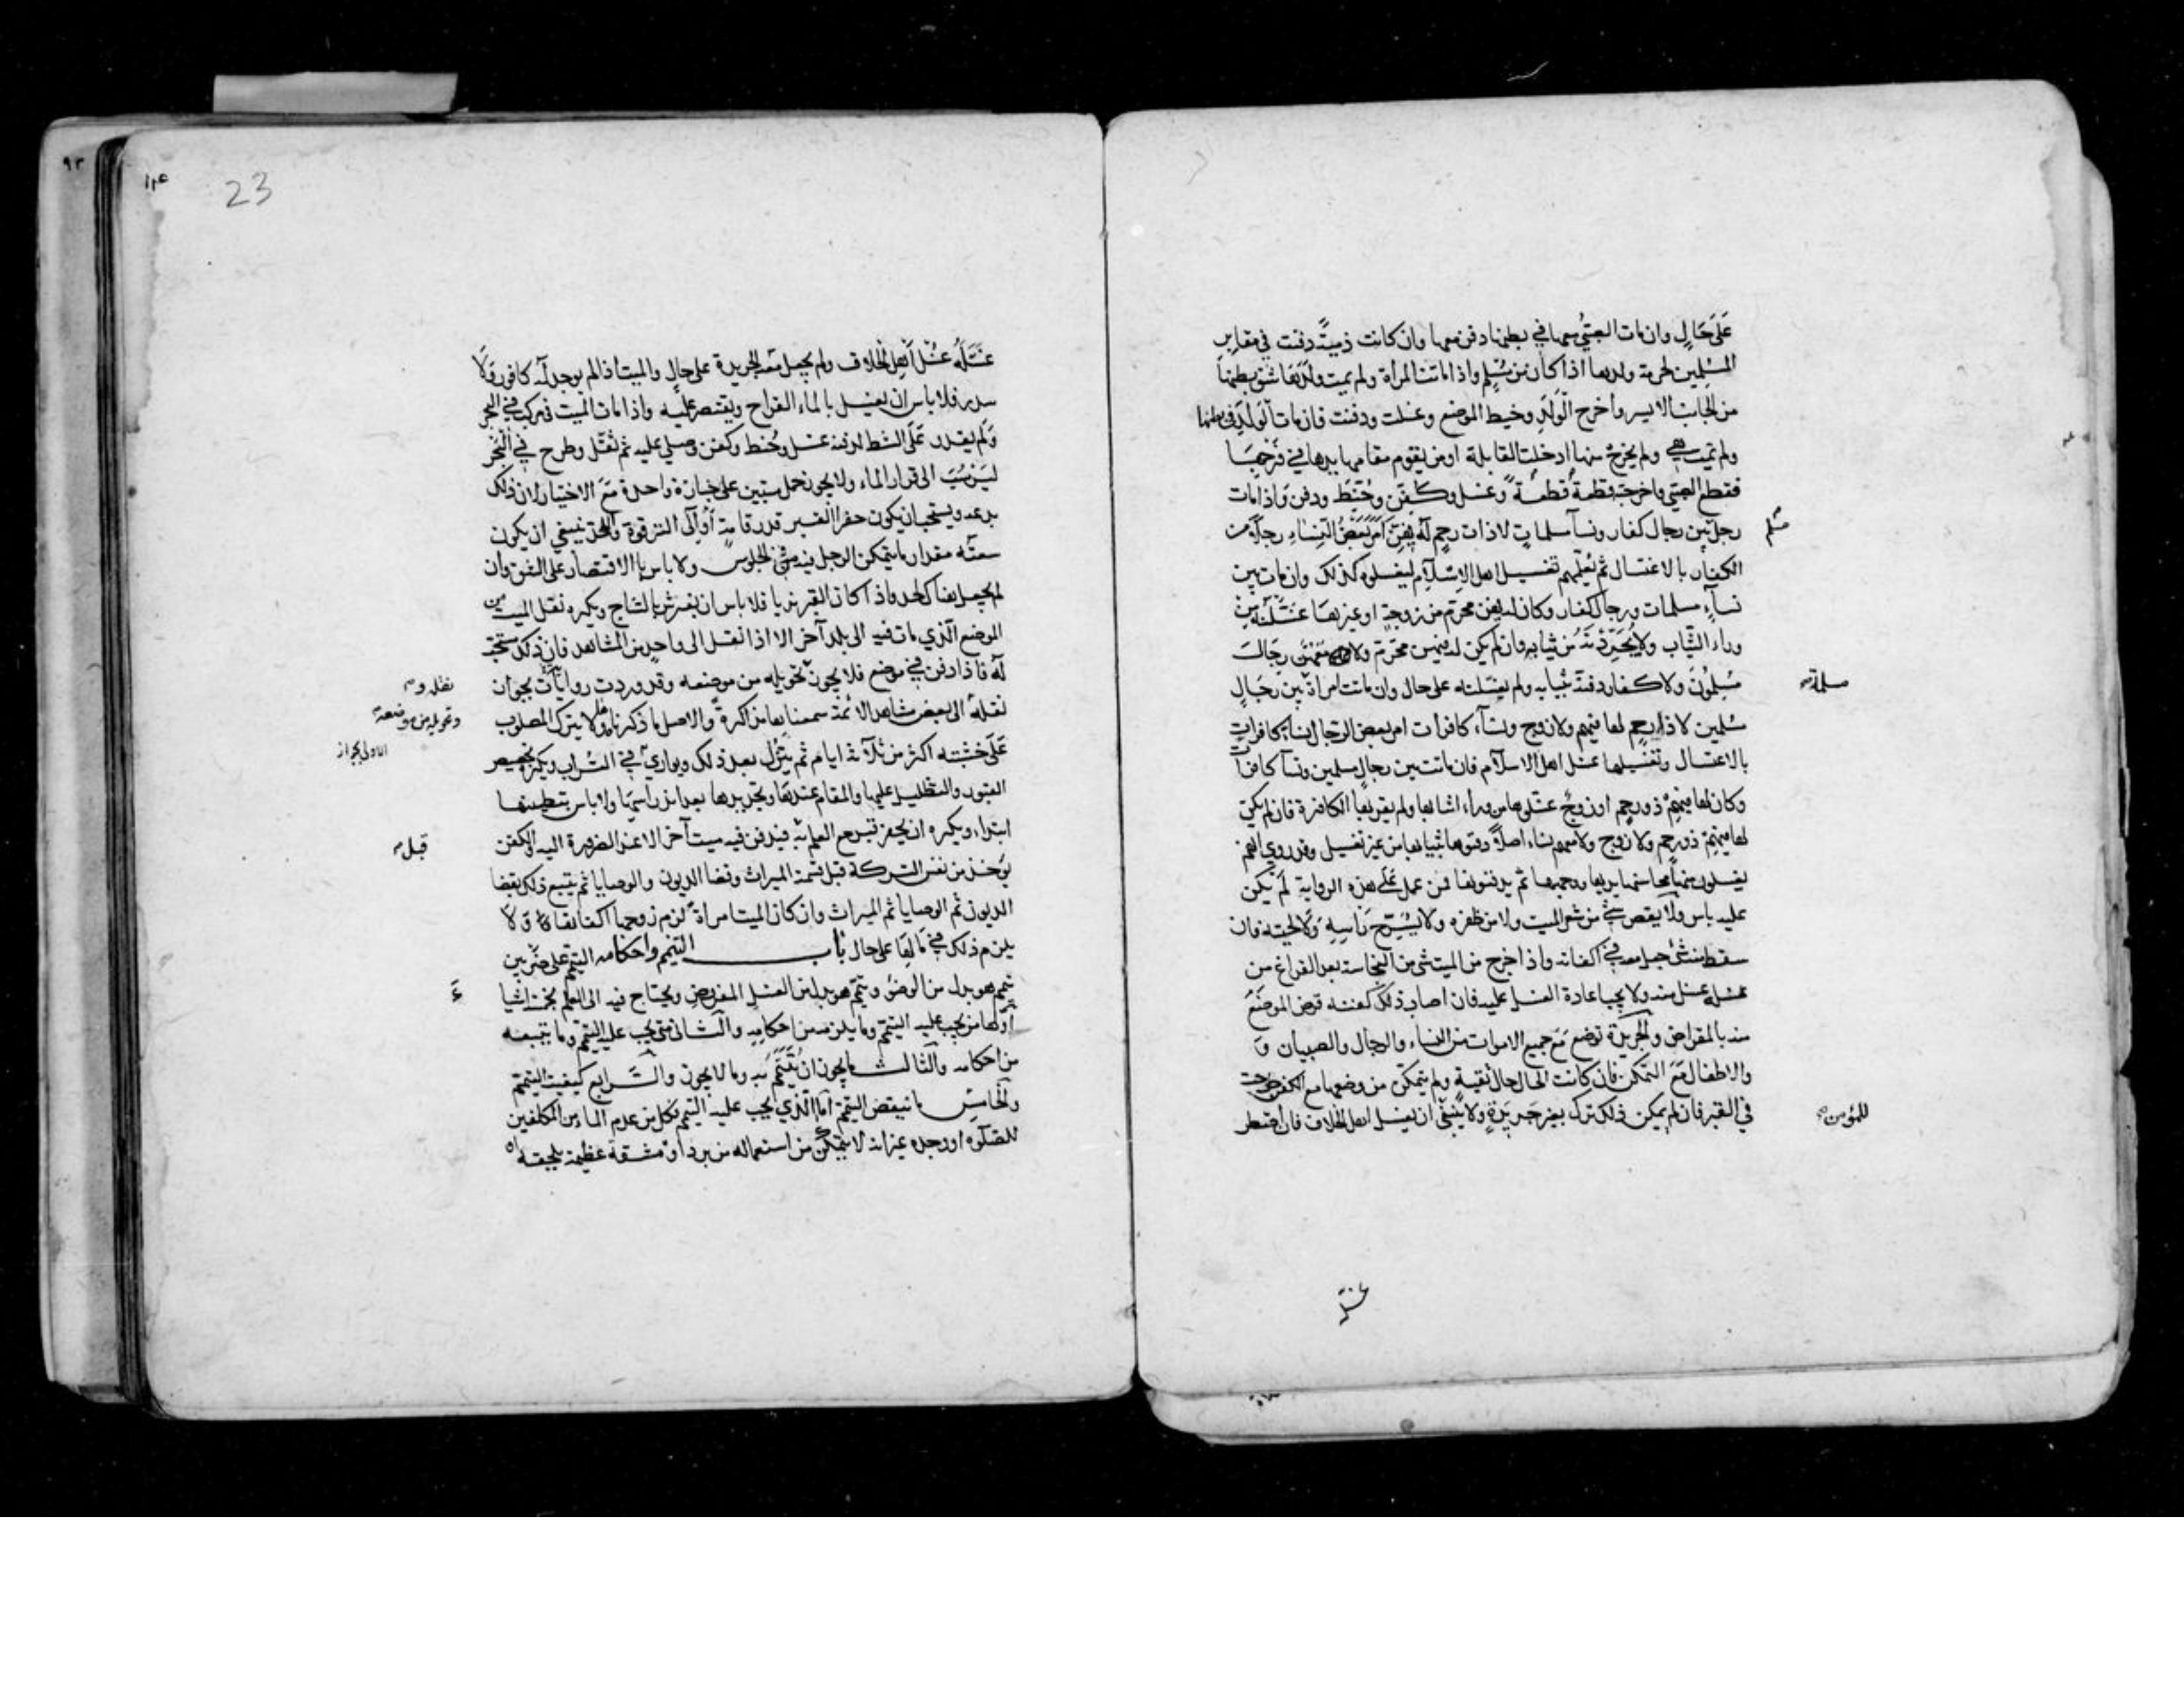 على حال وان مات الصبي معها في بطنها دفن معها وان كانت ذمية دفنت في مقابر
المسلمين لحرمة ولدها اذا كان من مسلم واذا ماتت المراة ولم يمت ولدها شق بطنها
من الجانب الايسر واخرج الولد وخيط الموضع وغسلت ودفنت فان مات الولد في بطنها
ولم تمت هي ولم يخرج منها ادخلت القابلة او من يقوم مقامها يدها في فرجها
فقطع الصبي واخرجته قطعة قطعة وغسل وكفن وحنط ودفن واذا مات
رجل بين رجال كفار ونسآ مسلمات لا ذات رحم له فيهن امر بعض النساء رجالا من
مسلم
الكفار بالاغتسال ثم تعلمهم تغسيل اهل الاسلام ليغسلوه كذلك وان مات بين
نسآء مسلمات ورجال كفار وكان له فيهن محرم من زوجة او غيرها غسلنه من
وراء الثياب ولا يجردنه من ثيابه وان لم يكن له فيهن محرم ولا معهن رجال
مسلمون ولا كفار دفنه بثيابه ولم يغسلنه على حال وان ماتت امراة بين رجال
مسلمة
مسلمين لا ذا رحم لها فيهم ولا زوج ونسآء كافرات امر بعض الرجال نساء كافرات
بالاغتسال وتغسيلها غسل اهل الاسلام فان ماتت بين رجال مسلمين ونسآ كافرات
وكان لها فيهم ذو رحم او زوج غسلوها من وراء اثيابها ولم يقربها الكافرة فان لم يكن
لها فيهم ذو رحم ولا زوج ولا معهم نساء اصلا دفنوها بثيابها من غير تغسيل وقد روي انهم
يغسلون منها محاسنها يديها ووجهها ثم يدفنونها فمن عمل على هذه الرواية لم يكن
عليه باس ولا يقص شئ من شعر الميت ولا من ظفره ولا يسرح راسه ولا لحيته فان
سقط منه شئ جعل معه في اكفانه واذا خرج من الميت شئ من النجاسة بعد الفراغ من
غسله غسل منه ولا يجب اعادة الغسل عليه فان اصاب ذلك كفنه قرض الموضع
منه بالمقراض والجريدة توضع مع جميع الاموات من النساء والرجال والصبيان و
والاطفال مع التمكن فان كانت الحال حال تقية ولم يتمكن من وضعها مع الكفن طرحت
في القبر فان لم يمكن ذلك ترك بغير جريدة ولا ينبغي ان يغسل اهل الخلاف فان اضطر
للمؤمن
غسله
23
٩٣
غسله غسل اهل الخلاف ولم يجعل معه الجريدة على حال والميت اذا لم يوجد له كافور ولا
سدر فلا باس ان يغسل بالماء القراح ويقتصر عليه واذا مات الميت في مركب في البحر
ولم يقدر على الشط لدفنه غسل وحنط وكفن وصلي عليه ثم ثقل وطرح في البحر
ليرسب الى قرار الماء ولا يجوز حمل ميتين على جنازة واحدة مع الاختيار لان ذلك
بدعة ويستحب ان يكون حفر القبر قدر قامة او الى الترقوة واللحد ينبغي ان يكون
سعته مقدار ما يتمكن الرجل فيه من الجلوس ولا باس بالاقتصار على الشق وان
لم يجعل هناك لحد واذا كان القبر نديا فلا باس ان يفرش بالساج ويكره نقل الميت من
الموضع الذي مات فيه الى بلد آخر الا اذا نقل الى واحد من المشاهد فان ذلك مستحب
له فاذا دفن في موضع فلا يجوز تحويله من موضعه وقد وردت روايات بجواز
نقله و
نقله الى بعض مشاهد الائمة سمعناها مذاكرة والاصل ما ذكرناه ولا يترك المصلوب
وتحويله من موضعه
على خشبته اكثر من ثلاثة ايام ثم ينزل بعد ذلك ويوارى في التراب ويكره تجصيص
القبور والتظليل عليها والمقام عندها وتجديدها بعد اندراسها ولا باس بتطيينها
ابتداء ويكره ان يحفر قبر مع العلم به فيدفن فيه ميت آخر الا عند الضرورة اليه والكفن
قبل
يؤخذ من نفس التركة قبل قسمة الميراث وقضا الديون والوصايا ثم يتبع ذلك بقضا
الديون ثم الوصايا ثم الميراث وان كان الميت امراة لزم زوجها اكفانها ولا
يلزم ذلك في مالها على حال باب التيمم واحكامه التيمم على ضربين
تيمم هو بدل من الوضوء وتيمم هو بدل من الغسل المفروض ويحتاج فيه الى العلم بخمسة اشيا
ء
اولها من يجب عليه التيمم وما يلزمه من احكامه والثاني متى يجب عليه التيمم وما يتبعه
من احكامه والثالث ما يجوز ان يتيمم به وما لا يجوز والرابع كيفية التيمم
والخامس ما ينقض التيمم اما الذي يجب عليه التيمم فكل من عدم الماء من المكلفين
للصلوة او وجده غير انه لا يتمكن من استعماله من برد او مشقة عظيمة يلحقه